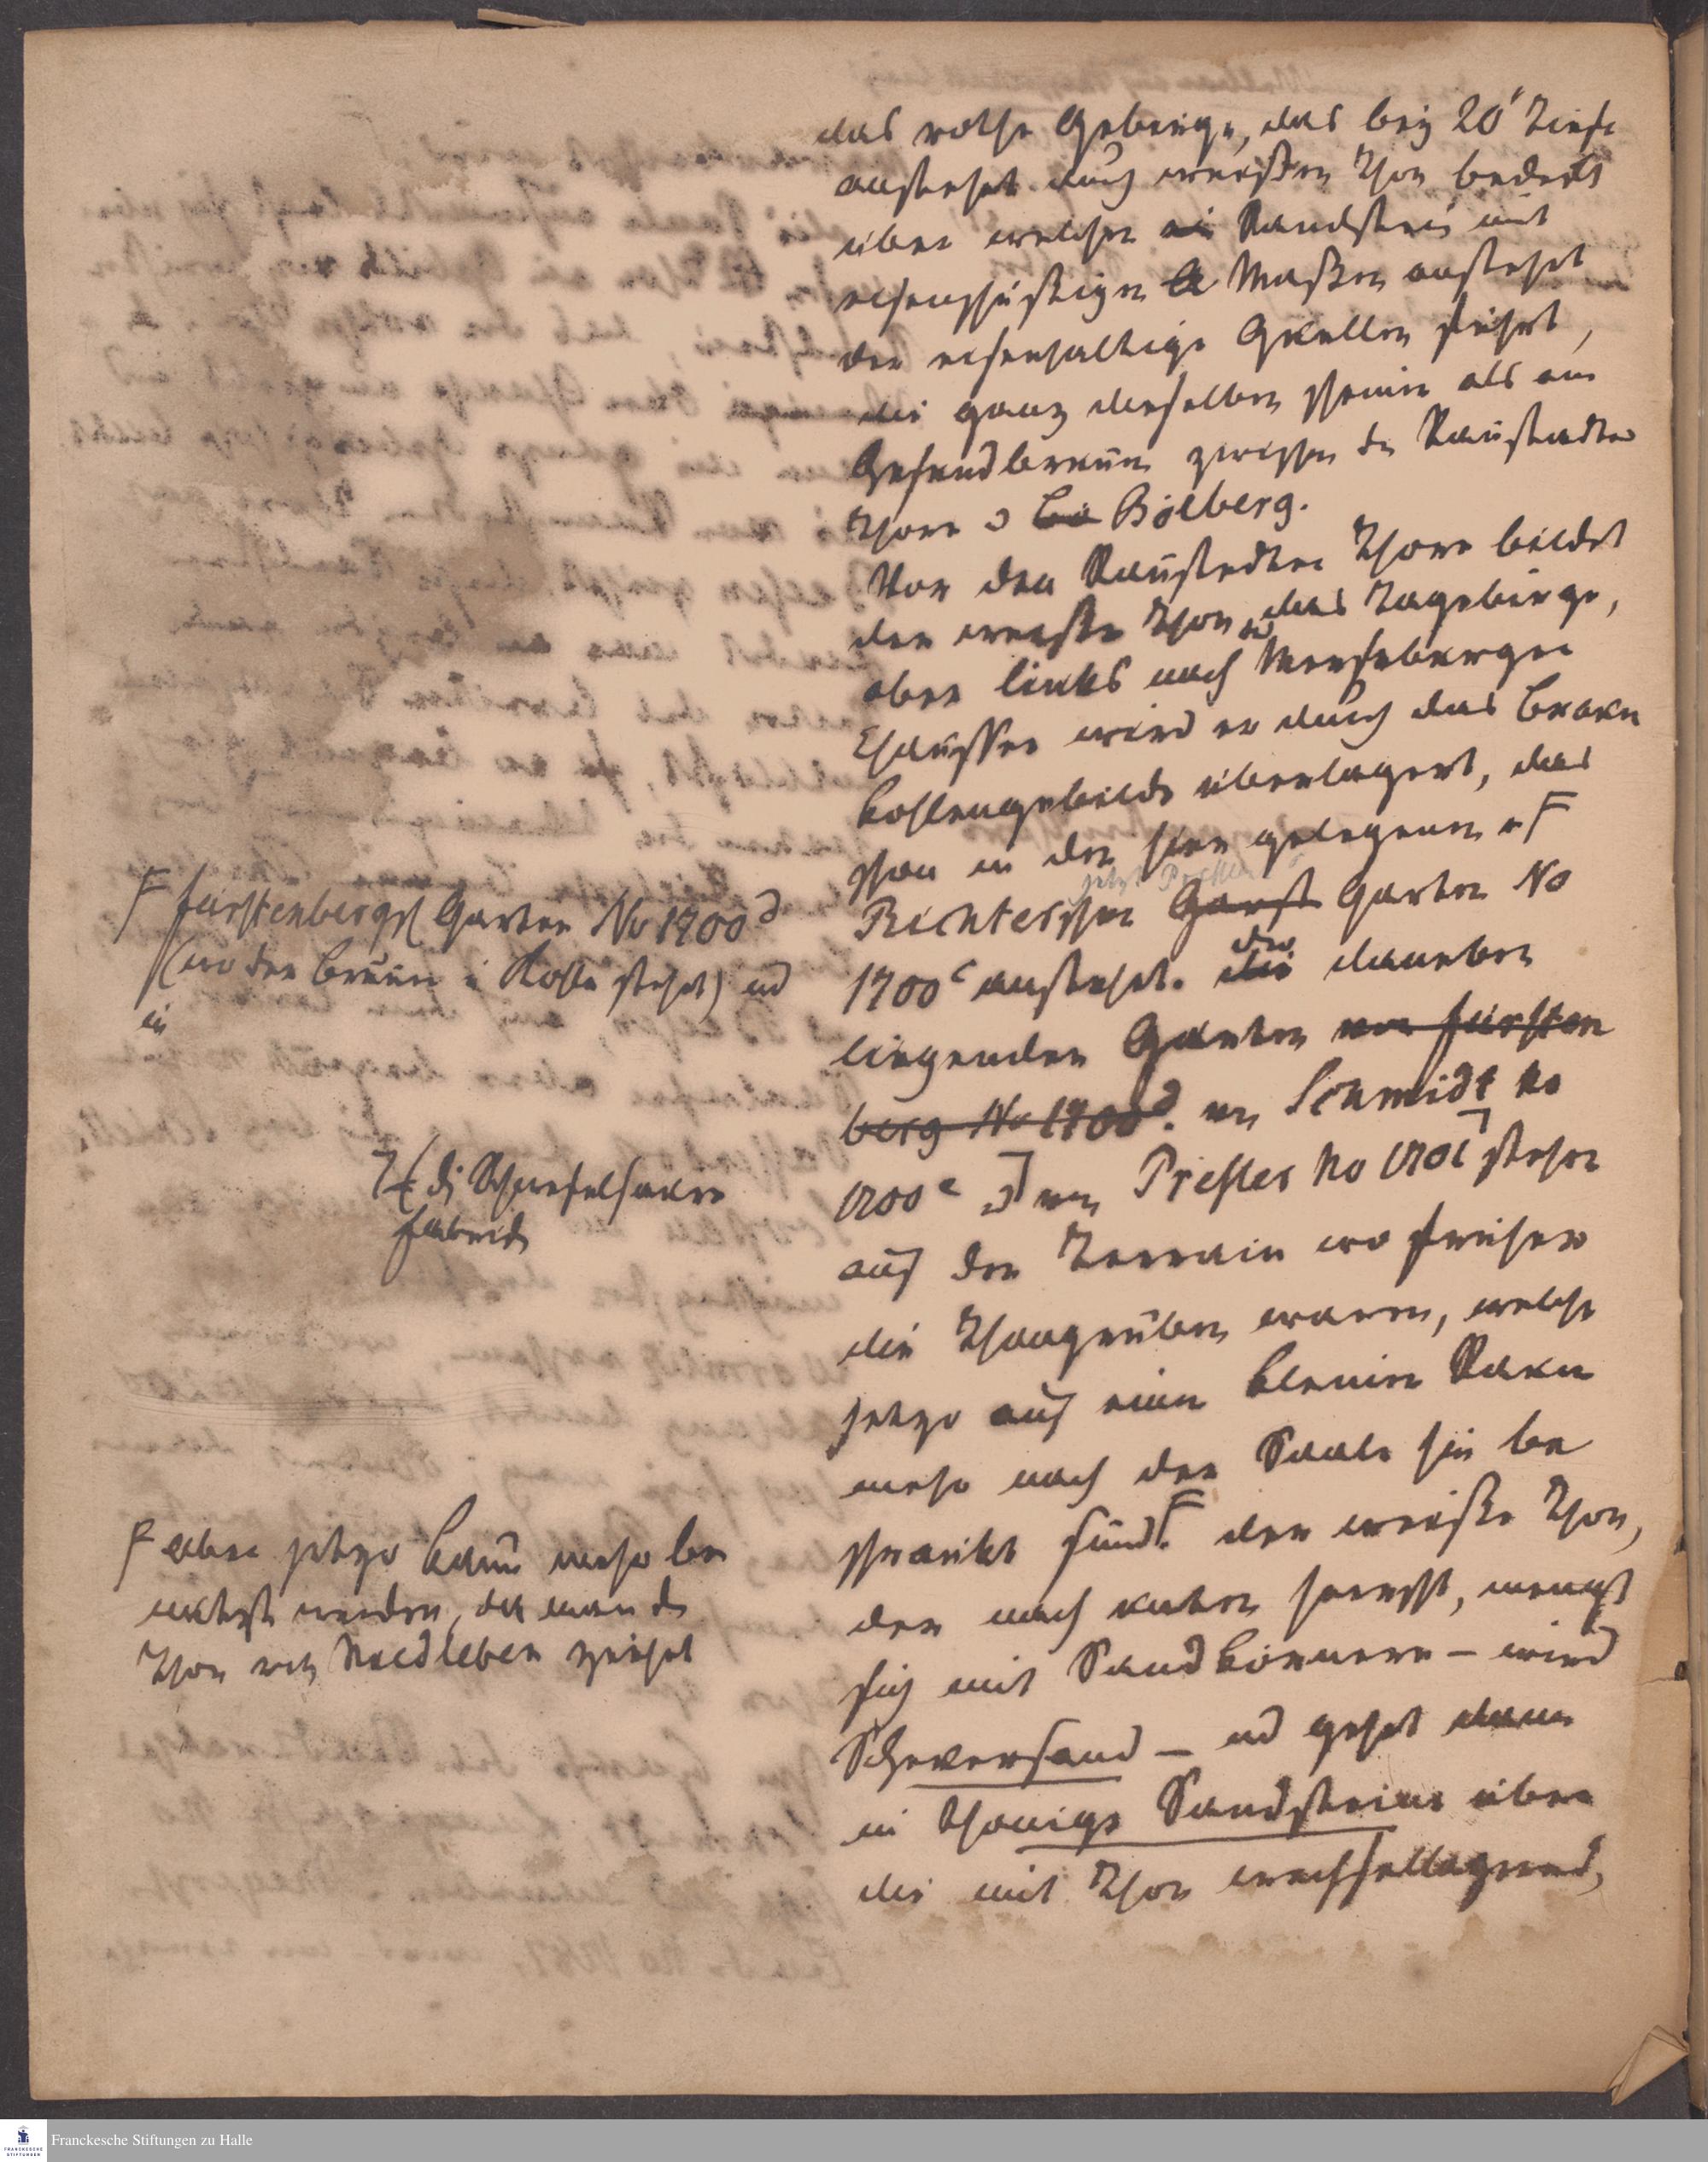 das rothe Gebirge, das bey 20' Tiefe
ansteht durch weißen Thon bedeckt
über welchen ein Sandstein mit
eisenschüßigen Maßen ansteht
der eisenhaltige Quellen führt,
die ganz dieselben scheinen als am
Gesundbrunn zwischen de Ranstädter
Thore u Bölberg.
Vor den Ranstedter Thore bildet
der weiße Thon das Tagebirge,
aber links nach Merseburger
Chaussee wird er durch das Braun
kohlengebilde überlagert, das
schon in den hier gelegenen
jetzt Pressler
Richterschen Garst Garten No
1700c ansteht. die der daneben
liegenden Garten von Fürsten
berg No 1700d. von Schmidt No
1700e u von Pressler No 1701 stehen
auf den Terrain wo früher
die Thongruben waren, welche
jetzo auf einen kleinen Raum
mehr nach der Saale hin be
schränkt sind der weiße Thon,
der nach unten herrscht, mengt
sich mit Sandkörnern – wird
Scheuersand – und geht dann
in thonige Sandsteine über
die mit Thon wechsellagernd,
F Fürstenbergs Garten No 1700d
(wo der Brunn i Hofe steht) und
in
(di Schwefelsäure
fabrick
F aber jetzo kaum mehr be
nutzt werden, da man de
Thon von Nietleben zieht
Franckesche Stiftungen zu Halle